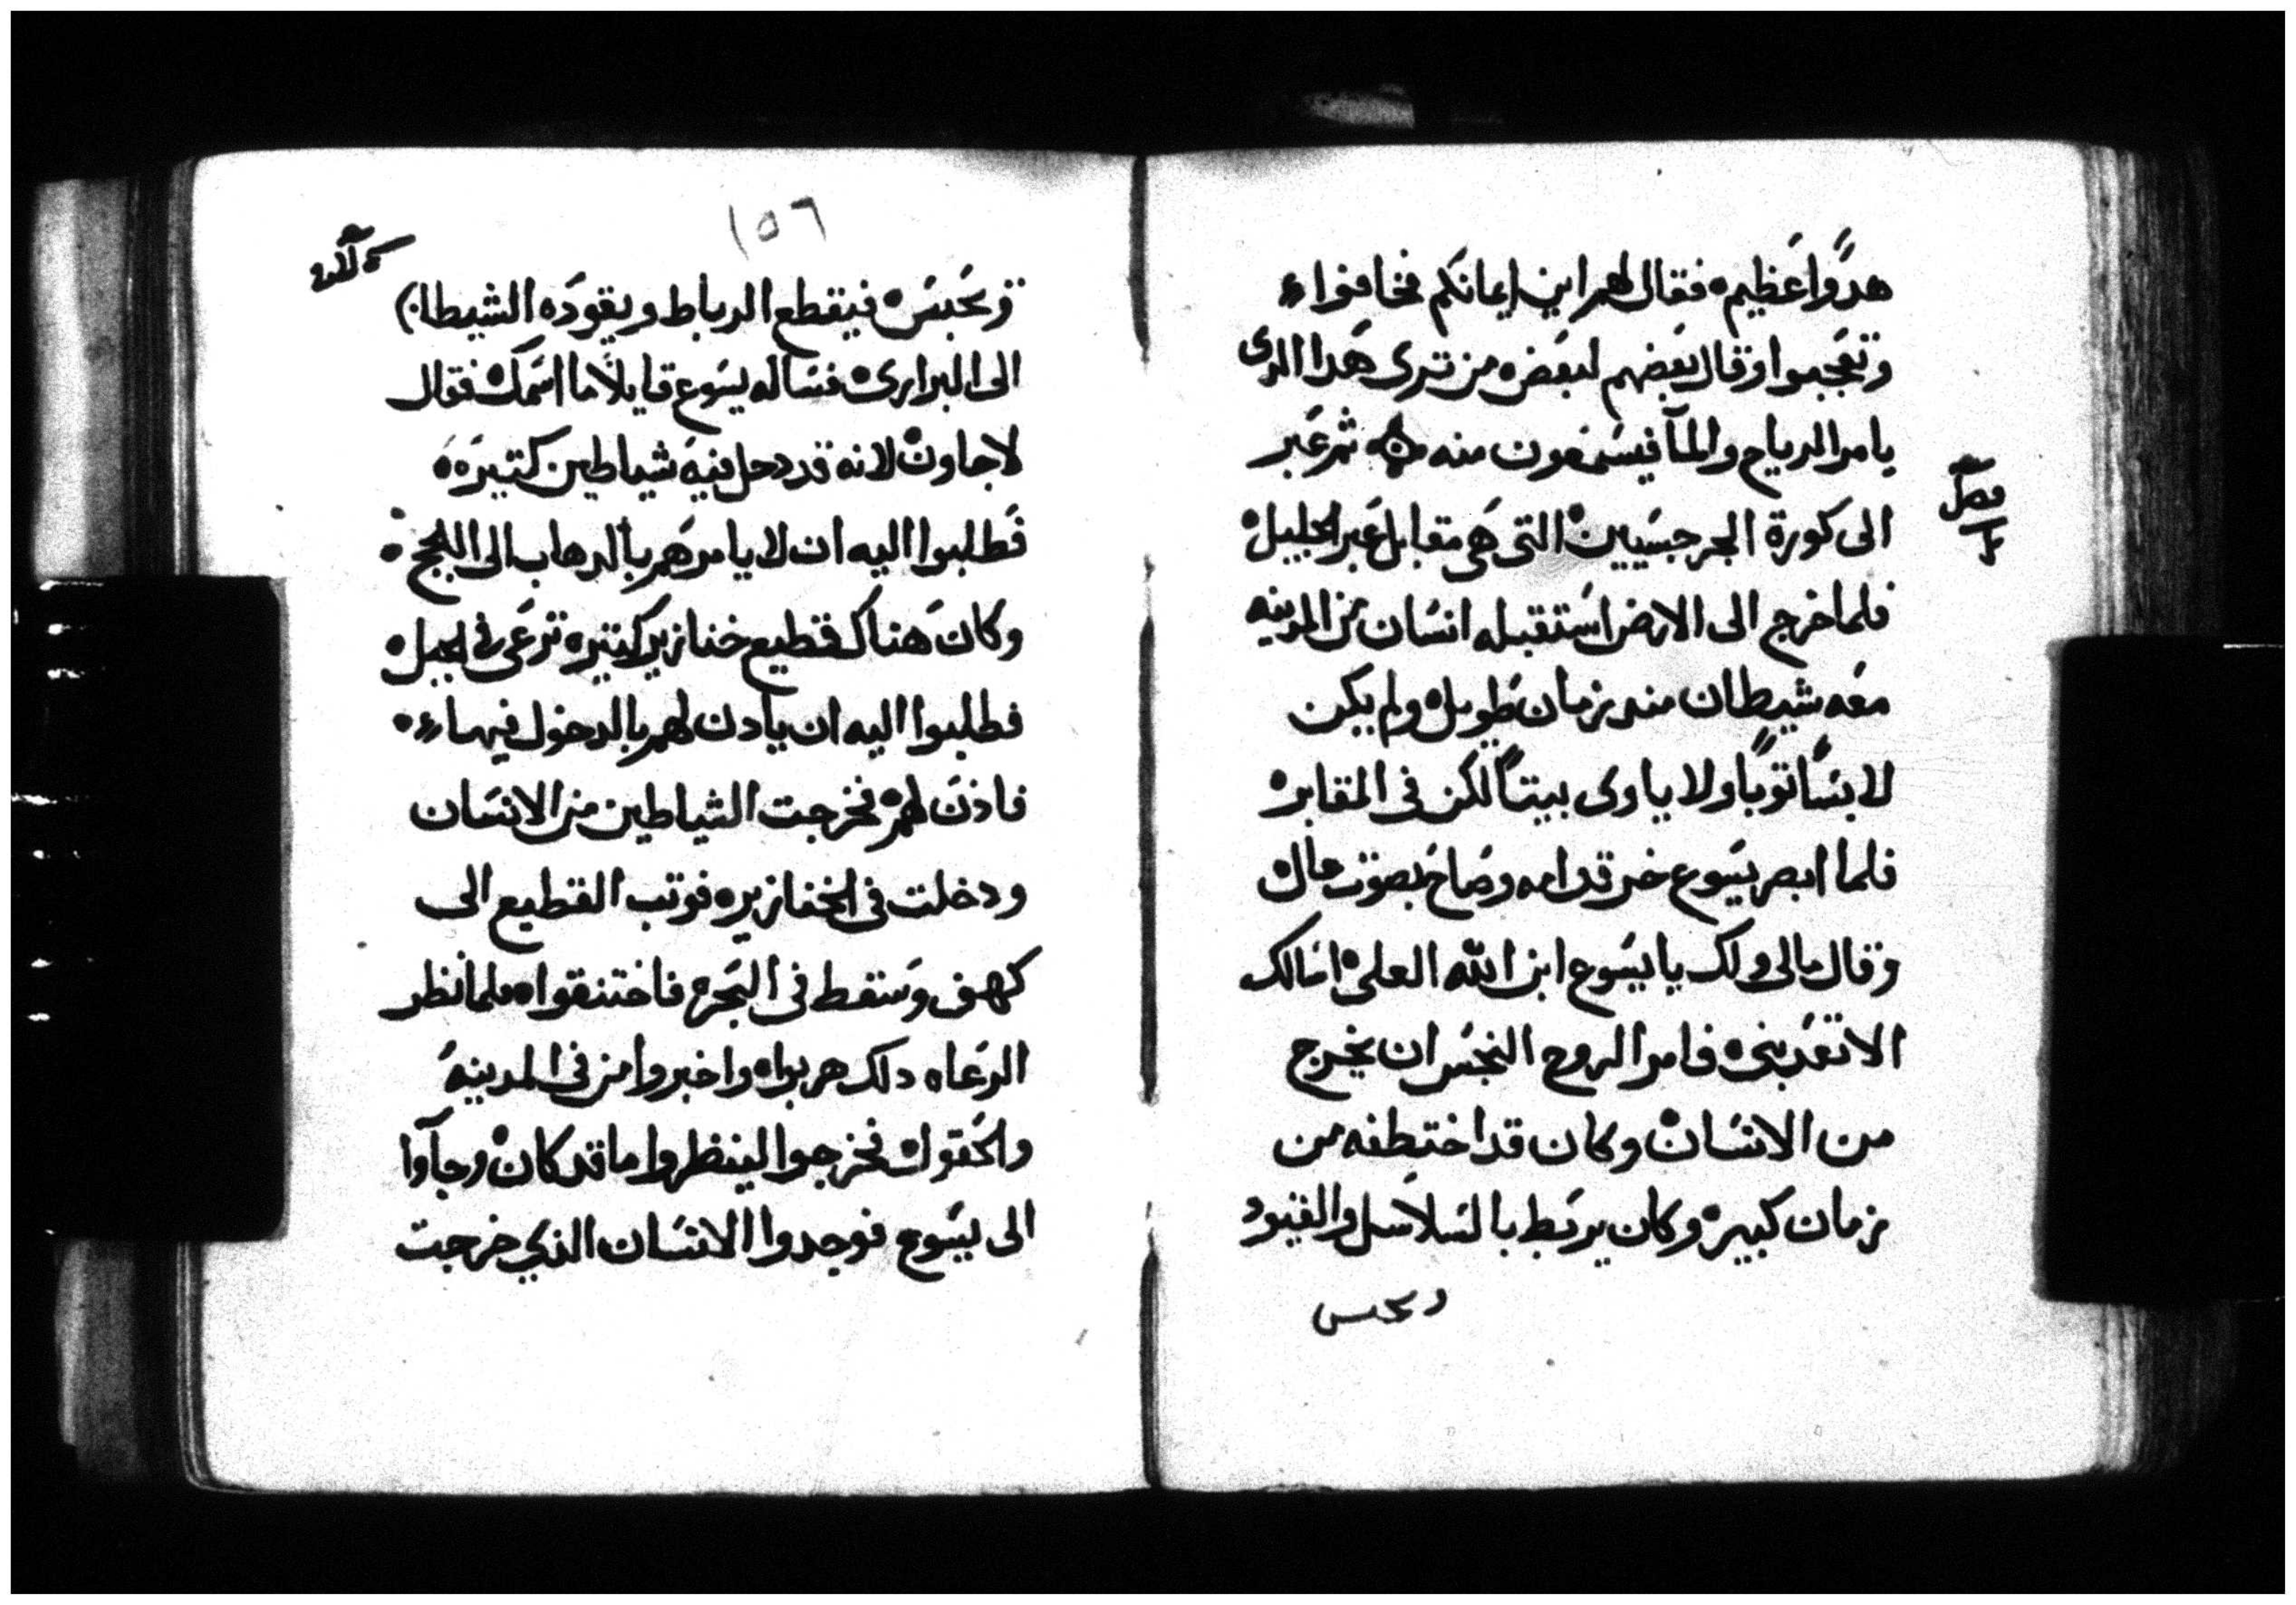 هدوًا عظيم ه فقال لهم اين ايمانكم فخافوا ه
وتعجبوا وقال بعضهم لبعض ه من تري هدا الدى
يامر الرياح والمآ فيسمعون منه ثم عبر
فصل
الى كورة الجرجسيين ه التى هى مقابل عبر الجليل ه
فلما خرج الى الارض استقبله انسان من المدينه
معه شيطان مند زمان طويل ه ولم يكن
لابسًا توبًا ولا ياوى بيتًا لكن فى المقابر ه
فلما ابصر يسوع خر قدامه وصاح بصوت عال ه
وقال مالى ولك يا يسوع ابن الله العلى ه اسالك
الا تعدبنى ه فامر الروح النجس ان يخرج
من الانسان ه وكان قد اختطفه من
زمان كبير ه وكان يربط بالسلاسل والقيود
ويحبس
١٥٦
ويحبس ه فيقطع الرباط ويقوده الشيطان
الى البراري ه فساله يسوع قايلًا ما اسمك ه فقال
لاجاون ه لانه قد دحل فيه شياطين كتيره ه
فطلبوا اليه ان لا يامرهم بالدهاب الى اللجج ه
وكان هناك قطيع خنازير كتيره ترعى فى الجبل ه
فطلبوا اليه ان يادن لهم بالدخول فيها ه
فاذن لهم ه فخرجت الشياطين من الانسان
ودخلت فى الخنازير ه فوتب القطيع الى
كهف وسقط فى البحر ه فاختنقوا ه فلما نظر
الرعاه دلك هربوا ه واخبروا من فى المدينه
والحقول ه فخرجوا لينظروا ما قد كان ه وجآوا
الى يسوع فوجدوا الانسان الذي خرجت